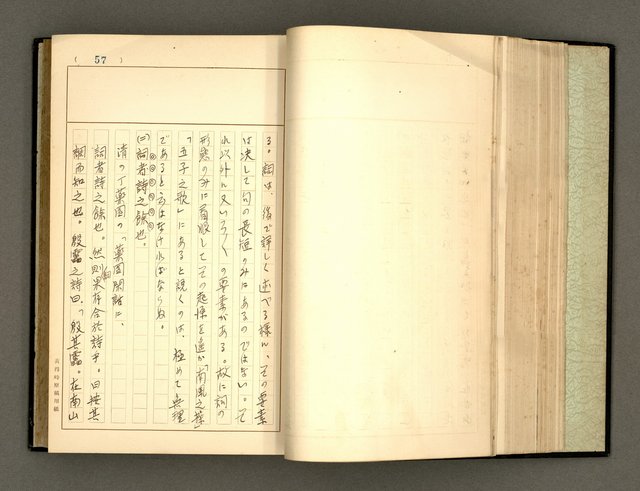 ( 57 )
る。詞は、後で詳しく述べる様に、その要素
は決して句の長短のみにあるのではない。そ
れ以外に又いろ〱の要素がある。故に詞の
形態のみに着眼してその起源を遠か「南風之操」
「五子之歌」にあると説くのは、極めて無理
であると云はなければならぬ。
(二)詞者詩之餘也。
清の丁薬園の「薬園閑話」に、
詞者詩之餘也。然則詞果有合於詩乎。曰按其
調而知之也。殷靁之詩曰、「殷其靁。在南山
黃得時原稿用紙